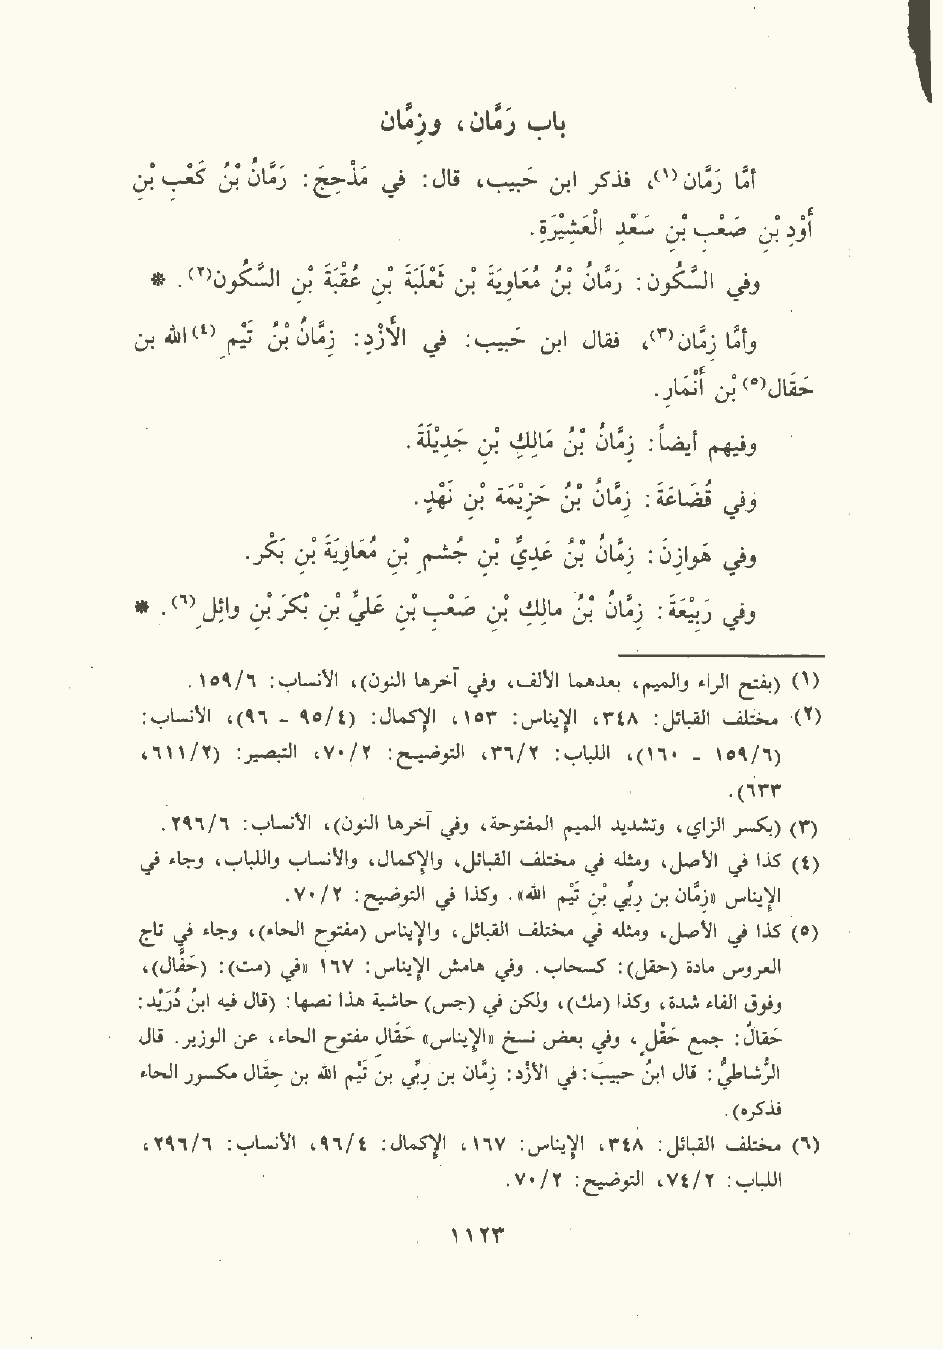 باب رَمَّان، وزِمَّان
أمَّا رَمَّان(١)، فذكر ابن حَبيب، قال: في مَذْحِجَ: رَمَّانُ بْنُ كَعْبِ بْنِ
أَوْدِ بْنِ صَعْبِ بْنِ سَعْدِ الْعَشِيْرَةِ.
وفي السَّكُونِ: رَمَّانُ بْنُ مُعَاوِيَةَ بْنِ ثَعْلَبَةَ بْنِ عُقْبَةَ بْنِ السَّكُون(٢). *
وأمَّا زِمَّان(٣)، فقال ابن حَبيب: في الأَزْدِ: زِمَّانُ بْنُ تَيْمِ(٤) الله بن
حَقَال(٥) بْنِ أَنْمَارِ.
وفيهم أيضاً: زِمَّانُ بْنُ مَالِكِ بْنِ جَدِيْلَةَ.
وفي قُضَاعَةَ: زِمَّانُ بْنُ حَزِيْمَةَ بْنِ نَهْدٍ.
وفي هَوازِنَ: زِمَّانُ بْنُ عَدِيِّ بْنِ جُشمِ بْنِ مُعَاوِيَةَ بْنِ بَكْرِ.
وفي رَبِيْعَةَ: زِمَّانُ بْنُ مالِكِ بْنِ صَعْبِ بْنِ عَليِّ بْنِ بَكْرَ بْنِ وائِلِ(٦). *
(١) (بفتح الراء والميم، وبعدهما الألف، وفي آخرها النون)، الأنساب: ١٥٩/٦.
(٢) مختلف القبائل: ٣٤٨، الإيناس: ١٥٣، الإكمال: (٩٥/٤ - ٩٦)، الأنساب:
(١٥٩/٦ - ١٦٠)، اللباب: ٣٦/٢، التوضيح: ٧٠/٢، التبصير: (٦١١/٢،
٦٣٣).
(٣) (بكسر الزاي، وتشديد الميم المفتوحة، وفي آخرها النون)، الأنساب: ٢٩٦/٦.
(٤) كذا في الأصل، ومثله في مختلف القبائل، والإكمال، والأنساب واللباب، وجاء في
الإيناس «زِمَّان بن رِبِّي بْنِ تَيْمِ الله». وكذا في التوضيح: ٧٠/٢.
(٥) كذا في الأصل، ومثله في مختلف القبائل، والإيناس (مفتوح الحاء)، وجاء في تاج
العروس مادة (حقل): كسحاب. وفي هامش الإيناس: ١٦٧ «في (مت): (حَفَّال)،
وفوق الفاء شدة، وكذا (ملك)، ولكن في (جس) حاشية هذا نصها: (قال فيه ابنُ دُرَيْد:
حَقالُ: جمع حَقْلِ، وفي بعض نسخ «الإيناس» حَقَال مفتوح الحاء، عن الوزير. قال
الرُّشاطيُّ: قال ابنُ حبيبَ: في الأزْد: زِمَّان بن رِبِّي بن تَيْمِ الله بن حِقَال مكسور الحاء
فذكره).
(٦) مختلف القبائل: ٣٤٨، الإيناس: ١٦٧، الإكمال: ٩٦/٤، الأنساب: ٢٩٦/٦،
اللباب: ٧٤/٢، التوضيح: ٧٠/٢.
١١٢٣